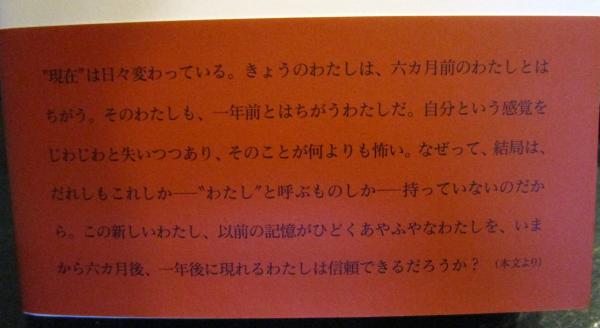 〝現在〟は日々変わっている。きょうのわたしは、六カ月前のわたしとは
ちがう。そのわたしも、一年前とはちがうわたしだ。自分という感覚を
じわじわと失いつつあり、そのことが何よりも怖い。なぜって、結局は、
だれしもこれしか──〝わたし〟と呼ぶものしか──持っていないのだか
ら。この新しいわたし、以前の記憶がひどくあやふやなわたしを、いま
から六カ月後、一年後に現れるわたしは信頼できるだろうか？（本文より）